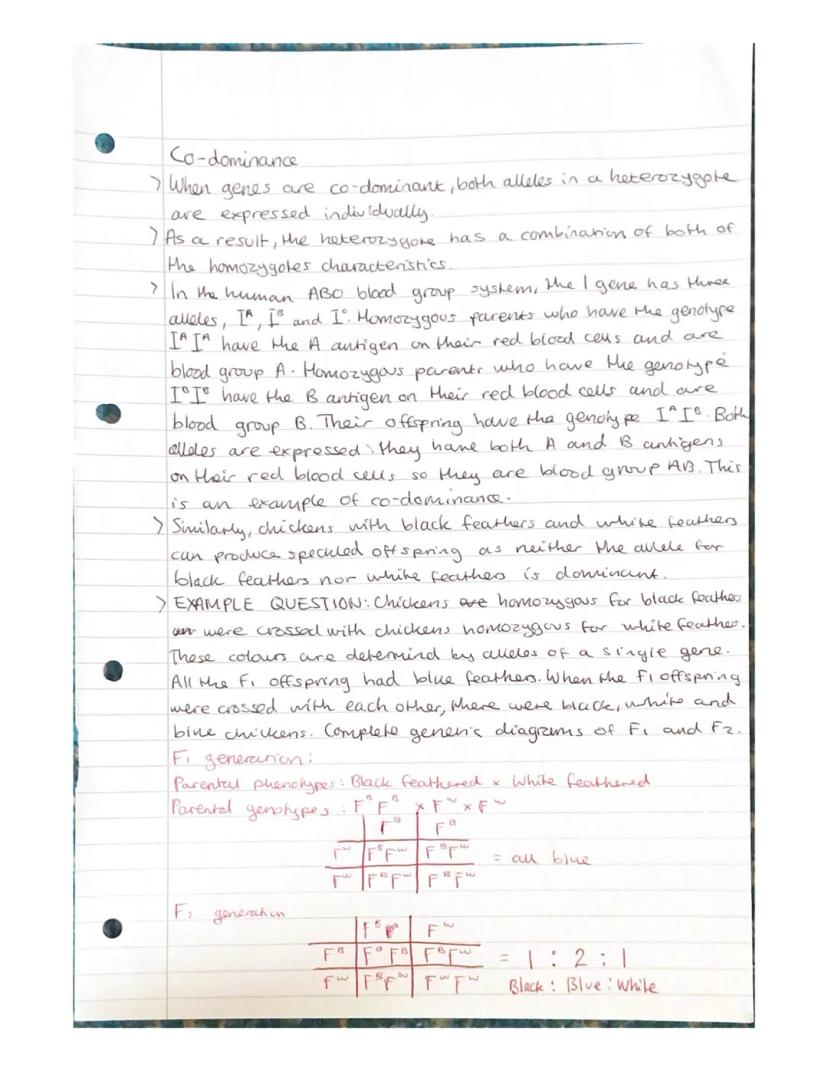 Co-dominance
> When genes are co-dominant, both alleles in a heterozygote
are expressed individually.
> As a result, the heterozygote has a combination of both of
the homozygotes characteristics.
> In the human ABO blood group system, the I gene has three
alleles, Iᴬ, Iᴮ and Iᴼ. Homozygous parents who have the genotype
Iᴬ Iᴬ have the A antigen on their red blood cells and are
blood group A. Homozygous parents who have the genotype
Iᴮ Iᴮ have the B antigen on their red blood cells and are
blood group B. Their offspring have the genotype Iᴬ Iᴮ. Both
alleles are expressed: they have both A and B antigens
on their red blood cells so they are blood group AB. This
is an example of co-dominance.
> Similarly, chickens with black feathers and white feathers
can produce speculed offspring as neither the allele for
black feathers nor white feathers is dominant.
> EXAMPLE QUESTION: Chickens homozygous for black feathers
were crossed with chickens homozygous for white feather.
These colours are determind by alleles of a single gene.
All the F₁ offspring had blue feathers. When the F₁ offspring
were crossed with each other, there were black, white and
blue chickens. Complete genetic diagrams of F₁ and F₂.
F₁ generation:
Parental phenotypes: Black feathered x White feathered
Parental genotypes: Fᴮ Fᴮ x Fᵂ x Fᵂ
Fᴮ Fᴮ
Fᵂ FᴮFᵂ FᴮFᵂ = all blue
Fᵂ FᴮFᵂ FᴮFᵂ
F₂ generation
Fᴮ Fᵂ
Fᴮ Fᴮ Fᴮ FᴮFᵂ = 1 : 2 : 1
Fᵂ FᴮFᵂ FᵂFᵂ Black : Blue : White